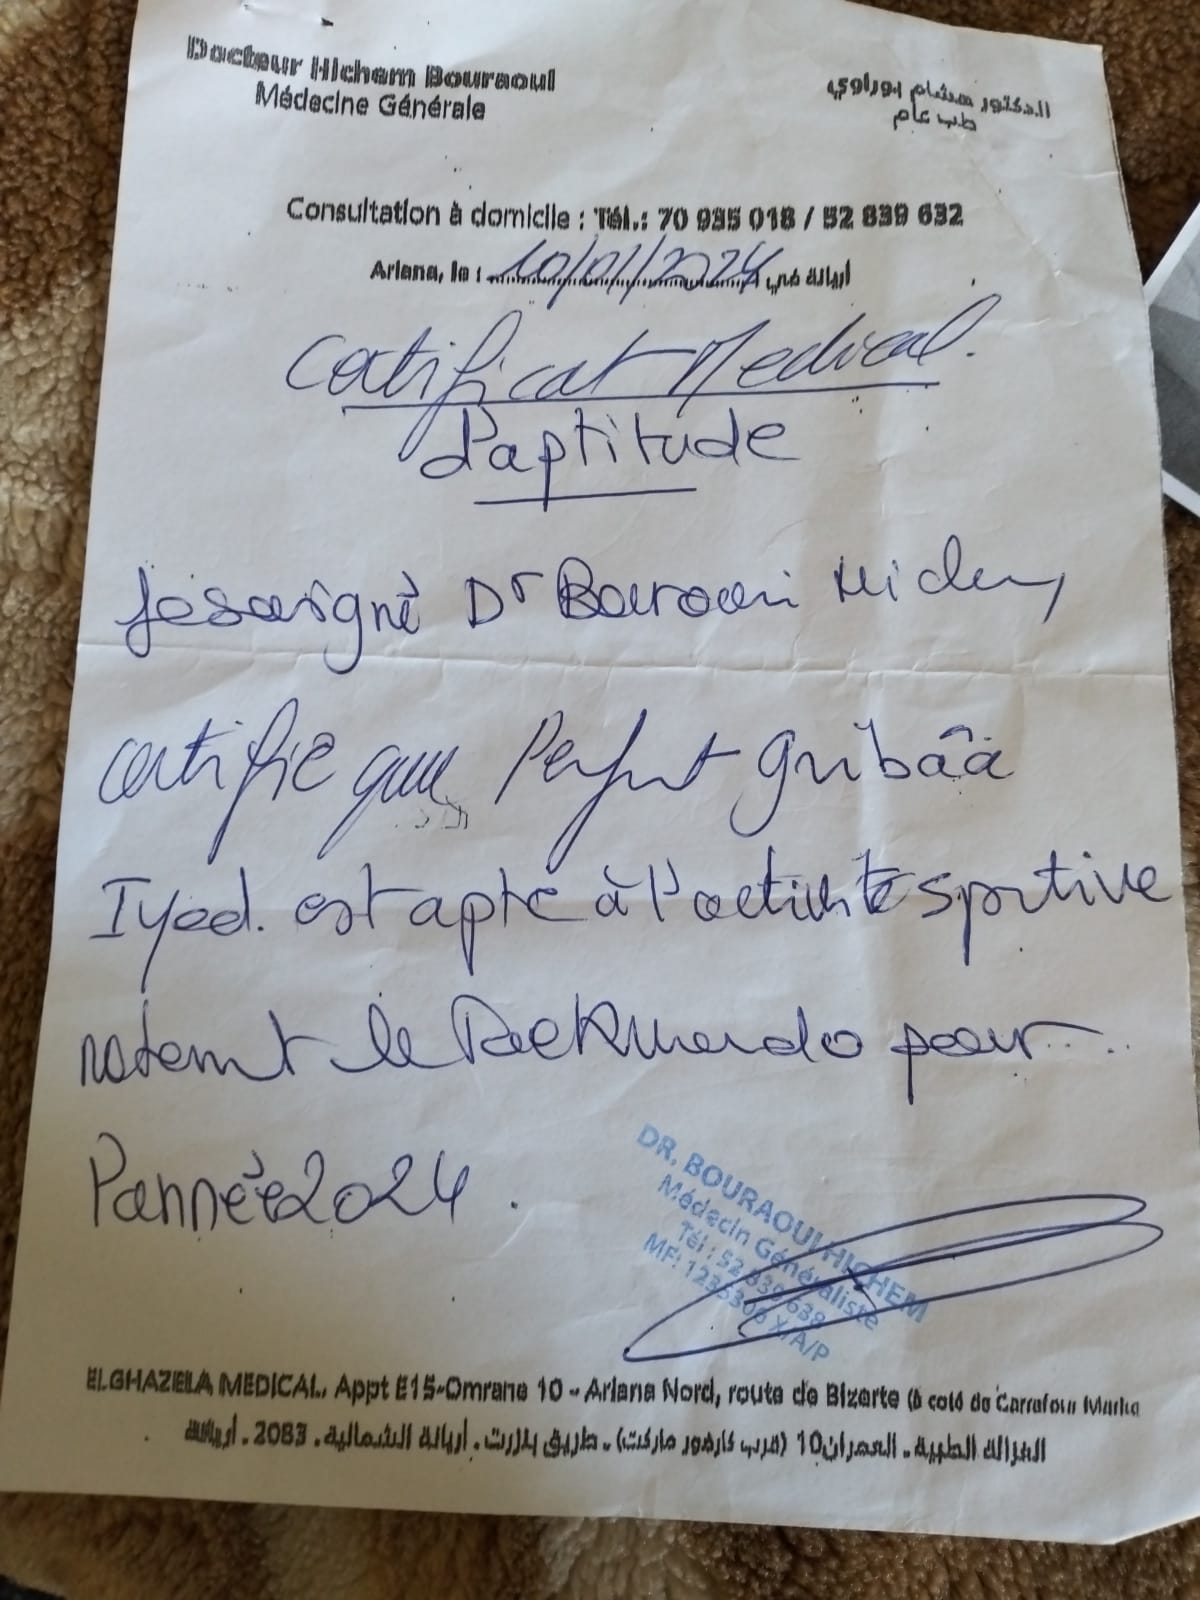 Docteur Hichem Bouraoui
Médecine Générale
الدكتور هشام بوراوي
طب عام
Consultation à domicile : Tél.: 70 935 018 / 52 839 632
Ariana, le : 10/01/2024 أريانة في
Certificat Medical.
d'aptitude
Je soigné Dr Bouraoui Hichem,
certifie que l'enfant Gribâa
Iyed. est apte à l'activité sportive
notamt le Taekwendo pour
l'année 2024.
DR. BOURAOUI HICHEM
Médecin Généraliste
Tél : 52 839 638
MF: 1236306 X/A/P
ELGHAZELA MEDICAL, Appt E15-Omrane 10 - Ariana Nord, route de Bizerte (à coté de Carrefour Market
الغزالة الطبية ـ العمران10 (قرب كارفور ماركت) ـ طريق بنزرت . أريانة الشمالية . 2083 . أريانة